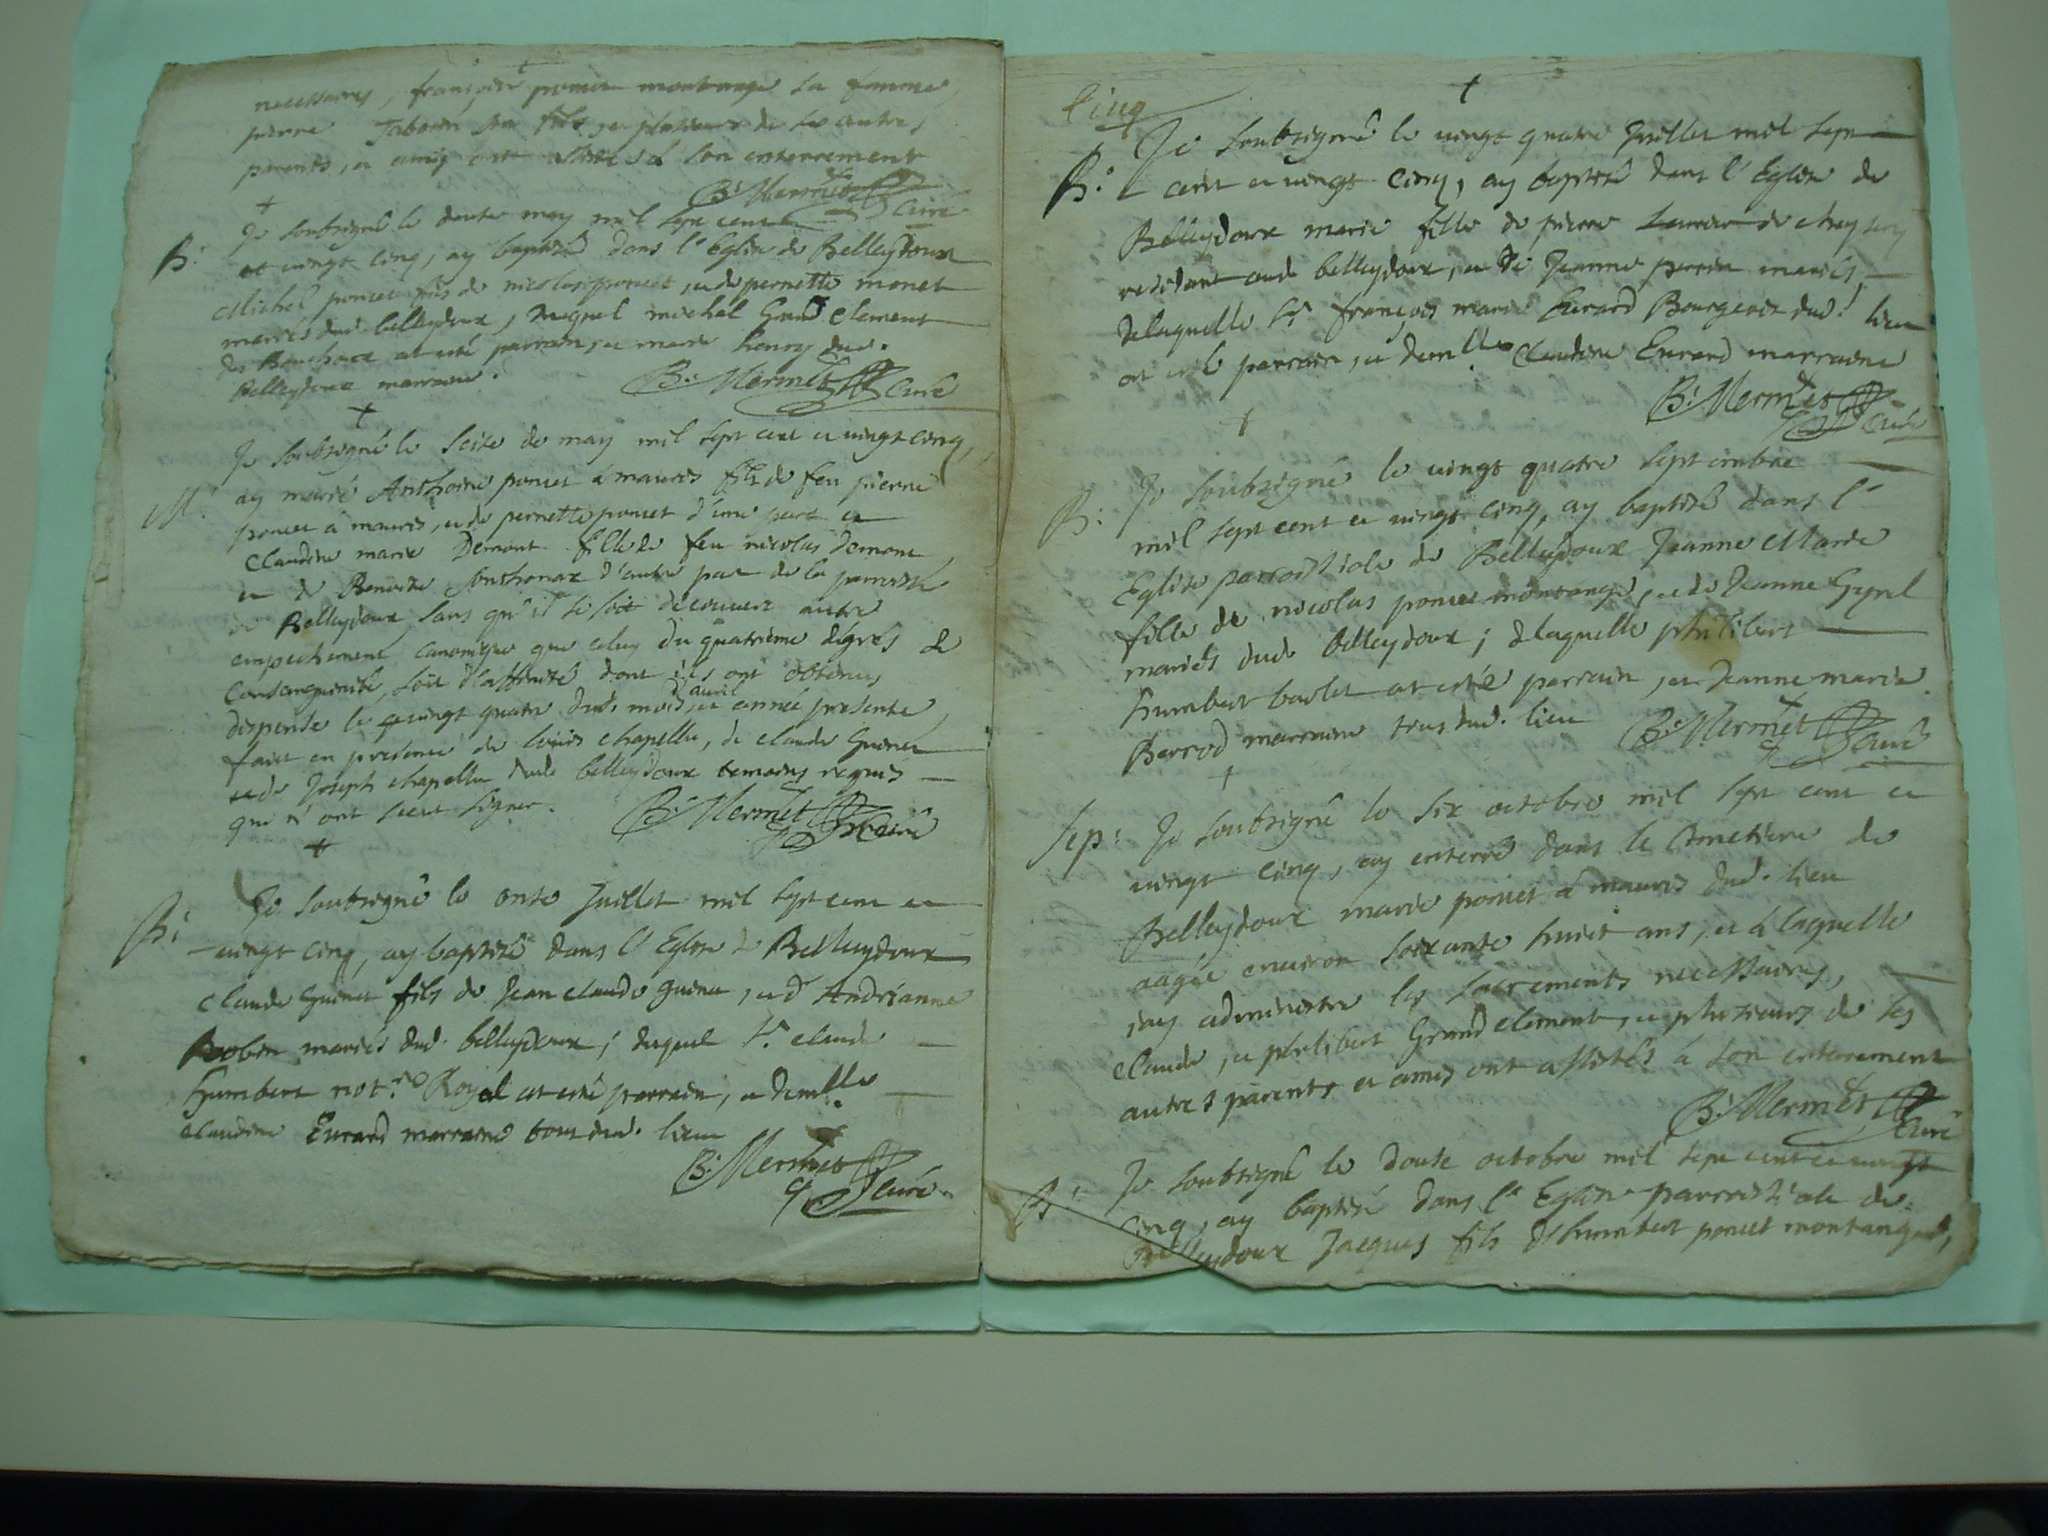 necessaires, françoise poncet montange sa femme,
pierre Tabouin son fils, et plusieurs de ses autres
parents, et amis ont assistés à son enterrement
B: Mermet Curé
B: Je soubsigné le douze may mil sept cent
et vingt cinq, ay baptisé dans l'Eglise de Belleydoux
Michel poncet fils de nicolas poncet, et de pernette monet
mariés dud. belleydoux, duquel michel Grand Clement
des Bouchoux at esté parrain, et marie henry dud.
Belleydoux marraine.
B: Mermet Curé
Je soubsigné le seize de may mil sept cent et vingt cinq,
M: ay marié Anthoine poncet à mauris fils de feu pierre
poncet à mauris, et de pernette poncet d'une part et
Claudine marie Demont fille de feu nicolas demont
et de Benoite Anthonax d'autre part de la parroisse
de Belleydoux, sans qu'il se soit decouvert autre
empechement canonique que celuy du quatrieme degrés de
Consanguinité, soit d'affinité dont ils ont obtenus
dispense le vingt quatre dud. mois avril et année presente,
faict en presence de louis chapellu, de claude Guenet
et de Joseph chapellu dud. belleydoux temoins requis
qui n'ont sceut signer.
B: Mermet Curé
B: Je soubsigné le onze Juillet mil sept cent et
vingt cinq, ay baptisé dans l'Eglise de Belleydoux
Claude Guenet fils de Jean claude guenet, et d'Andrianne
Robin mariés dud. belleydoux; duquel Sr. claude
humbert notre. Royal at esté parrain, et demlle.
claudine Evrard marraine tous dud. lieu
B: Mermet Curé
Cinq
Je soubsigné le vingt quatre Juillet mil sept
B: cent et vingt cinq, ay baptisé dans l'Eglise de
Belleydoux marie fille de pierre de
residant aud. belleydoux, et de Jeanne perrin mariés,
delaquelle Sr. françois marie Evrard Bourgeois dud. lieu
at esté parrain, et demlle. claudine Evrard marraine
B: Mermet Curé
B: Je soubsigné le vingt quatre septembre
mil sept cent et vingt cinq, ay baptisé dans l'
Eglise parroissiale de Belleydoux Jeanne Marie
fille de nicolas poncet montange, et de Jeanne Gynel
mariés dud. belleydoux; delaquelle philibert
humbert barlet at esté parrain, et Jeanne marie
Berrod marraine tous dud. lieu
B: Mermet Curé
Sep: Je soubsigné le six octobre mil sept cent et
vingt cinq, ay enterré dans le Cimetiere de
Belleydoux marie poncet à mauris dud. lieu
aagée environ soixante huict ans, et à laquelle
j'ay administré les sacrements necessaires,
claude, et philibert Grand clement, et plusieurs de ses
autres parents et amis ont assistés à son enterrement
B: Mermet Curé
B: Je soubsigné le douze octobre mil sept cent et vingt
cinq, ay baptisé dans l'Eglise parroissiale de
Belleydoux Jacques fils d'humbert poncet montange,